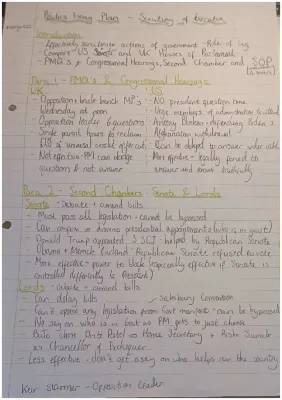 Politics Essay Plan - Scrutiny of Executive
Introduction
- Effectively scrutinise actions of government - Role of leg
Compare US Senate and UK Houses of Parliament
- PMQ's + Congressional Hearings, Second Chamber and SOP
Para 1 - PMQ's & Congressional Hearings
UK
US
- Opposition + back bench MP's
- NO president question time
Wednesday at noon
- Have members of administration
- Opposition leader 6 questions
- Antony Blinken -
Afghanistan withdrawal
- Can be
- Not effective - PM can dodge
- More effective - legally forced to
questions + not answer
answer and answer truthfully
Para 2 - Second Chambers - Senate & Lords
Senate - Debate + amend bills
- Must pass all legislation - cannot be bypassed
- Can
- Donald Trump appointed 3 SCJ - helped by Republican Senate
- Obama + Merrick Garland Republican Senate refused
- More effective - power to block (especially effective if Senate is
controlled differently to President)
Lords - debate + amend bills
- Can delay bills
Salisbury Convention
- Can't oppose any legislation from Govt manifesto - can be bypassed
- No say on who is in Govt as PM gets to just choose
- Priti Patel as Home Secretary + Rishi Sunak
as Chancellor of Exchequer
- Less effective - don't get a say on who helps run the country
Keir Starmer - Opposition Leader